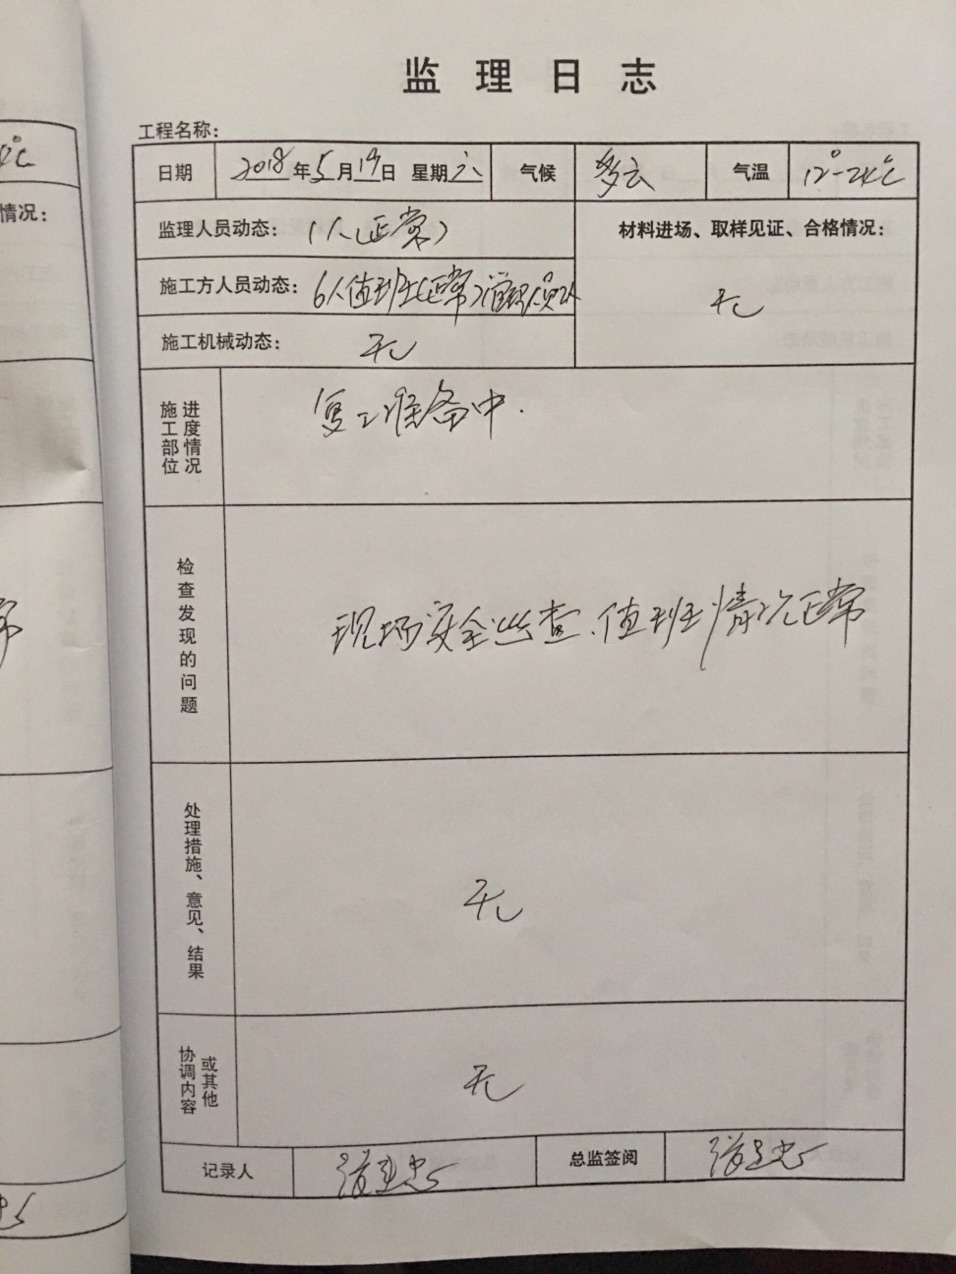 监理日志
工程名称：
日期 2018年5月19日 星期六 气候 多云 气温 12°-24℃
监理人员动态： 1人(正常)
材料进场、取样见证、合格情况：
无
施工方人员动态： 6人值班(正常)管理人员2人
施工机械动态： 无
施工部位
进度情况
复工准备中.
检查发现的问题
现场安全巡查、值班情况正常
处理措施、意见、结果
无
协调内容
或其他
无
记录人
总监签阅
℃
情况：
常